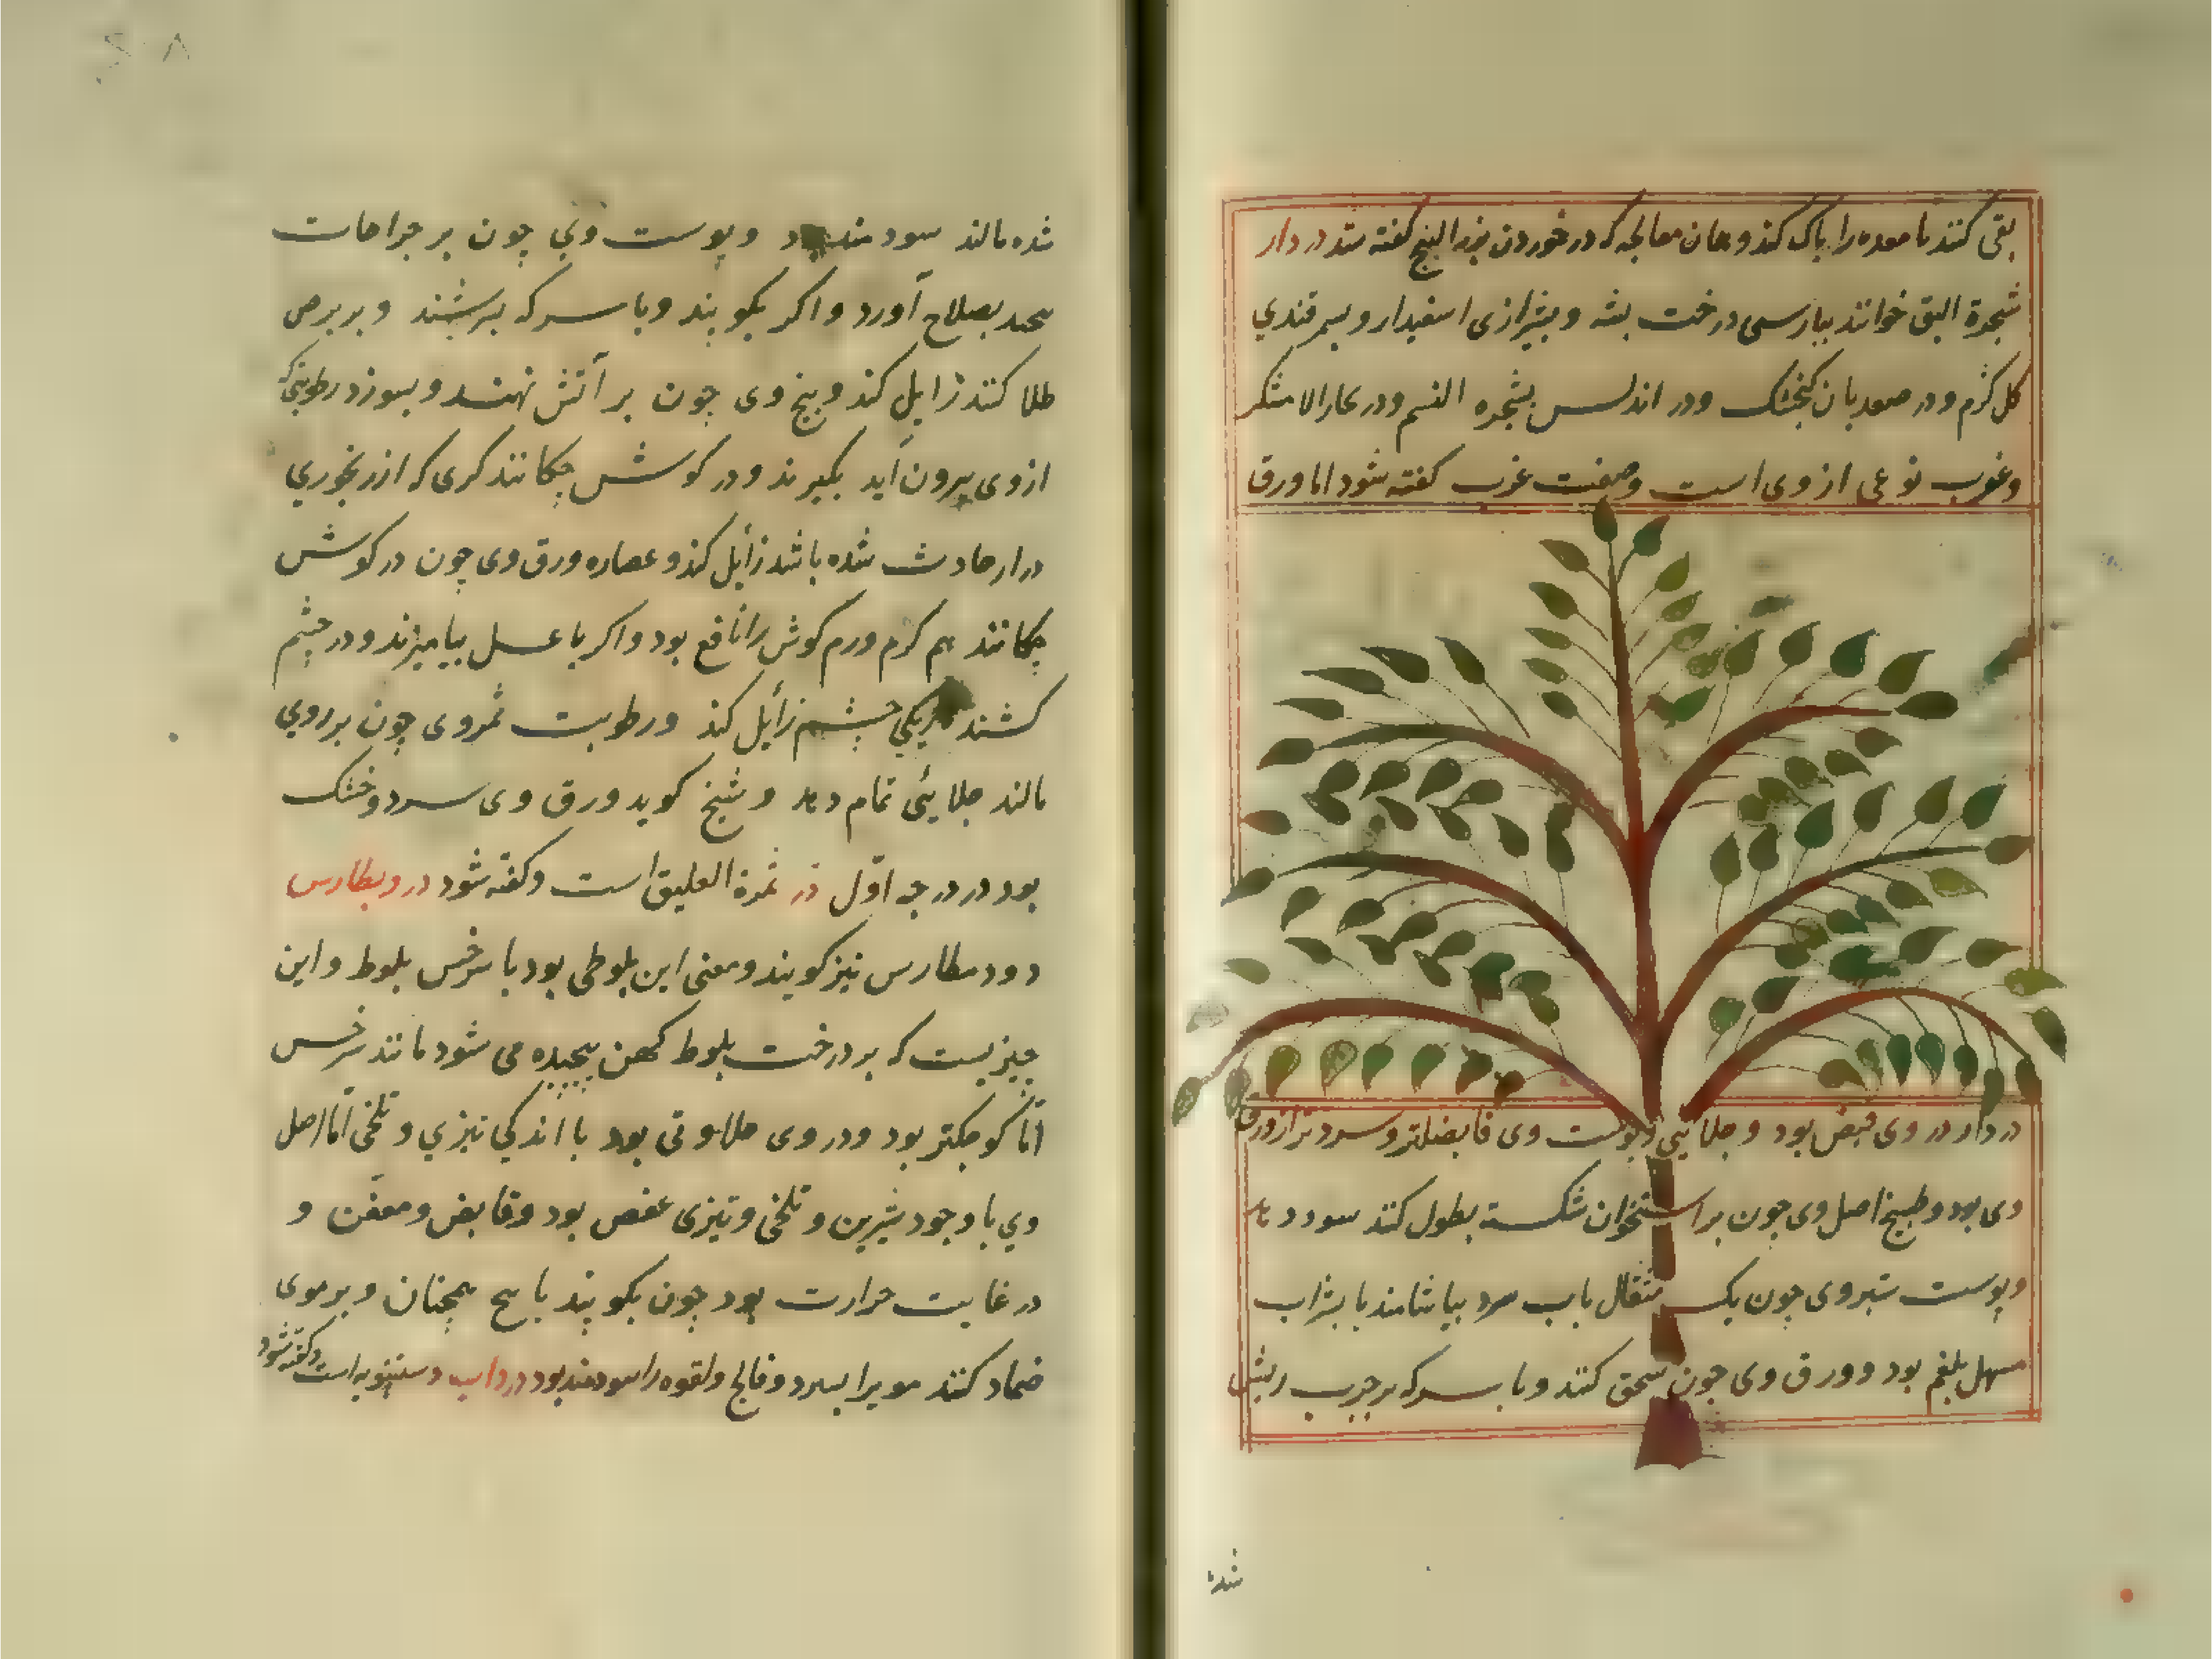 بقی کنند تا معده را پاک کند و همان معالجه که در خوردن بزرالبنج گفته شد در دار
شجرة البق خوانند بپارسی درخت پشه و بشیرازی اسفیدار و بسمرقندی
کل کژم و در صعدیان کنجشک ودر اندلس بشجره النسم ودر
وغرب نوعی از وی است وصفت غرب کفته شود اما ورق
دردار در وی قبض بود و جلایی و پوست وی قابضتر و سردتر از ورق
وی بود و طبیخ اصل وی چون بر استخوان شکسته بطول کنند سود دهد
وپوست ستبر وی چون یک مثقال باب سرد بیاشامند یا بشراب
مسهل بلغم بود و ورق وی چون سحق کنند و با سرکه بر جرب ریش
شده
شده مالند سودمند بود وپوست وی چون بر جراحات
بصلاح آورد و اکر بکوبند و با سرکه بسرشند و بر برص
طلا کنند زایل کند و بیخ وی چون بر آتش نهند و بسوزد رطوبتی که
از وی بیرون آید بکیرند و در کوش چکانند کری که از رنجوری
دراز حادث شده باشد زایل کند و عصاره ورق وی چون در کوش
چکانند هم کرم ورم کوش را نافع بود و اکر با عسل بیامیزند و در چشم
کشند تاریکی چشم زایل کند ورطوبت ثمر وی چون بر روی
مالند جلایی تمام دهد و شیخ کوید ورق وی سرد و خشک
بود در درجه اول در ثمرة العلیق است وکفته شود دروبطارس
دودمطارس نیز کویند و معنی این بلوطی بود یا سرخس بلوط و این
چیزیست که بر درخت بلوط کهن پیچیده می شود مانند سرخس
اما کوچکتر بود ودر وی حلاوتی بود با اندکی تیزی و تلخی اما اصل
وی با وجود شیرین و تلخی و تیزی عفص بود وقابض ومعفن و
در غایت حرارت بود چون بکوبند با بیخ همچنان و بر موی
ضماد کنند مویرا بسرد و فالج ولقوه را سودمند بود درداب دستنبویه است و کفته شود